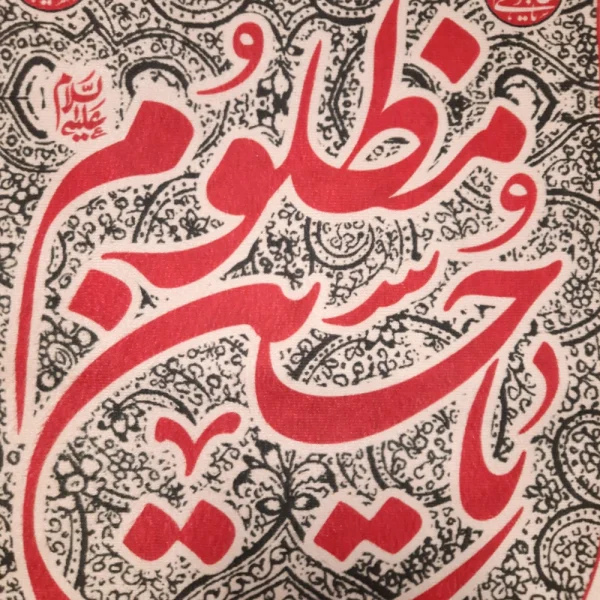 یا حسین
مظلوم
علیه السلام